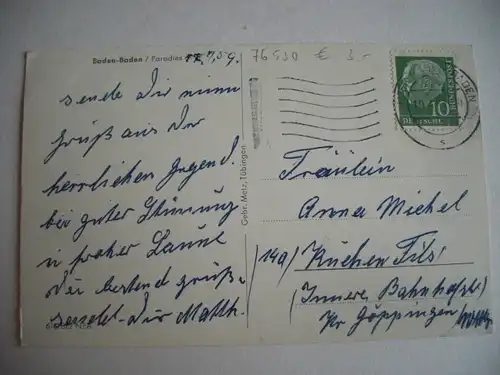 Baden-Baden / Paradies 17.7.59.
76530 € 3.-
sende Dir einen
Gruß aus der
herrlichen Gegend.
bei guter Stimmung
in froher Laune
Die besten Grüße
sendet Dir Matth.
Gebr. Metz, Tübingen
10
DEUTSCHE
BUNDESPOST
Fräulein
Anna Michel
(14a) Kuchen Fils
(Innere Bahnhofst.
Kr Göppingen